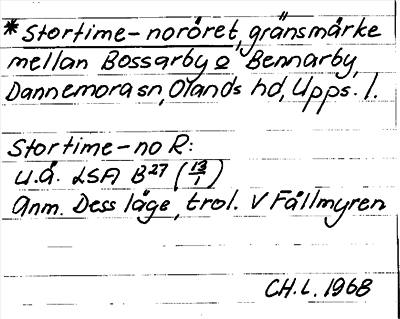 *Stortime-noröret, gränsmärke
mellan Bossarby o Bennarby,
Dannemora sn, Olands hd, Upps. l.
Stortime-no R:
u.å. LSA B27 (13/1)
Anm. Dess läge, trol. V Fållmyren
CH.L. 1968